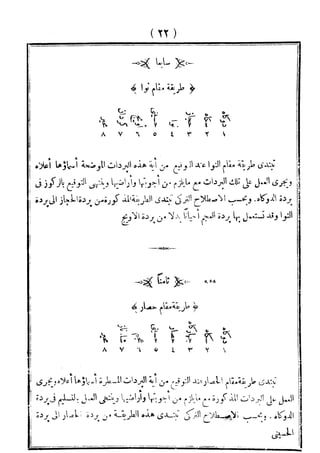 ( ٢٢ )
سابعا
﴿ طريقة مقام نوا ﴾
١ ٢ ٣ ٤ ٥ ٦ ٧ ٨
تبتدى طريقة مقام النوا عند التوقيع من أية هذه البردات الموضحة أسماؤها أعلاه
ويجرى العمل على تلك البردات مع مايلزم من أجوبتها وأراضيها وينتهى التوقيع بالركوز فى
بردة الدوكاه. وبحسب الاصطلاح التركى تبتدى الطريقة المذكورة من بردة الحجاز الى بردة
النوا وقد تستعمل بها بردة العجم أحيانا بدلا من بردة الاويج
ثامنا
﴿ طريقة مقام حصار ﴾
١ ٢ ٣ ٤ ٥ ٦ ٧ ٨
تبتدى طريقة مقام الحصار عند التوقيع من أية البردات المسطرة أسماؤها أعلاه ويجرى
العمل على البردات المذكورة مع مايلزم من أجوبتها وأراضيها وينتهى العمل بالتسليم فى بردة
الدوكاه. وبحسب الاصطلاح التركى تبتدى هذه الطريقة من بردة الحصار الى بردة
الحسينى